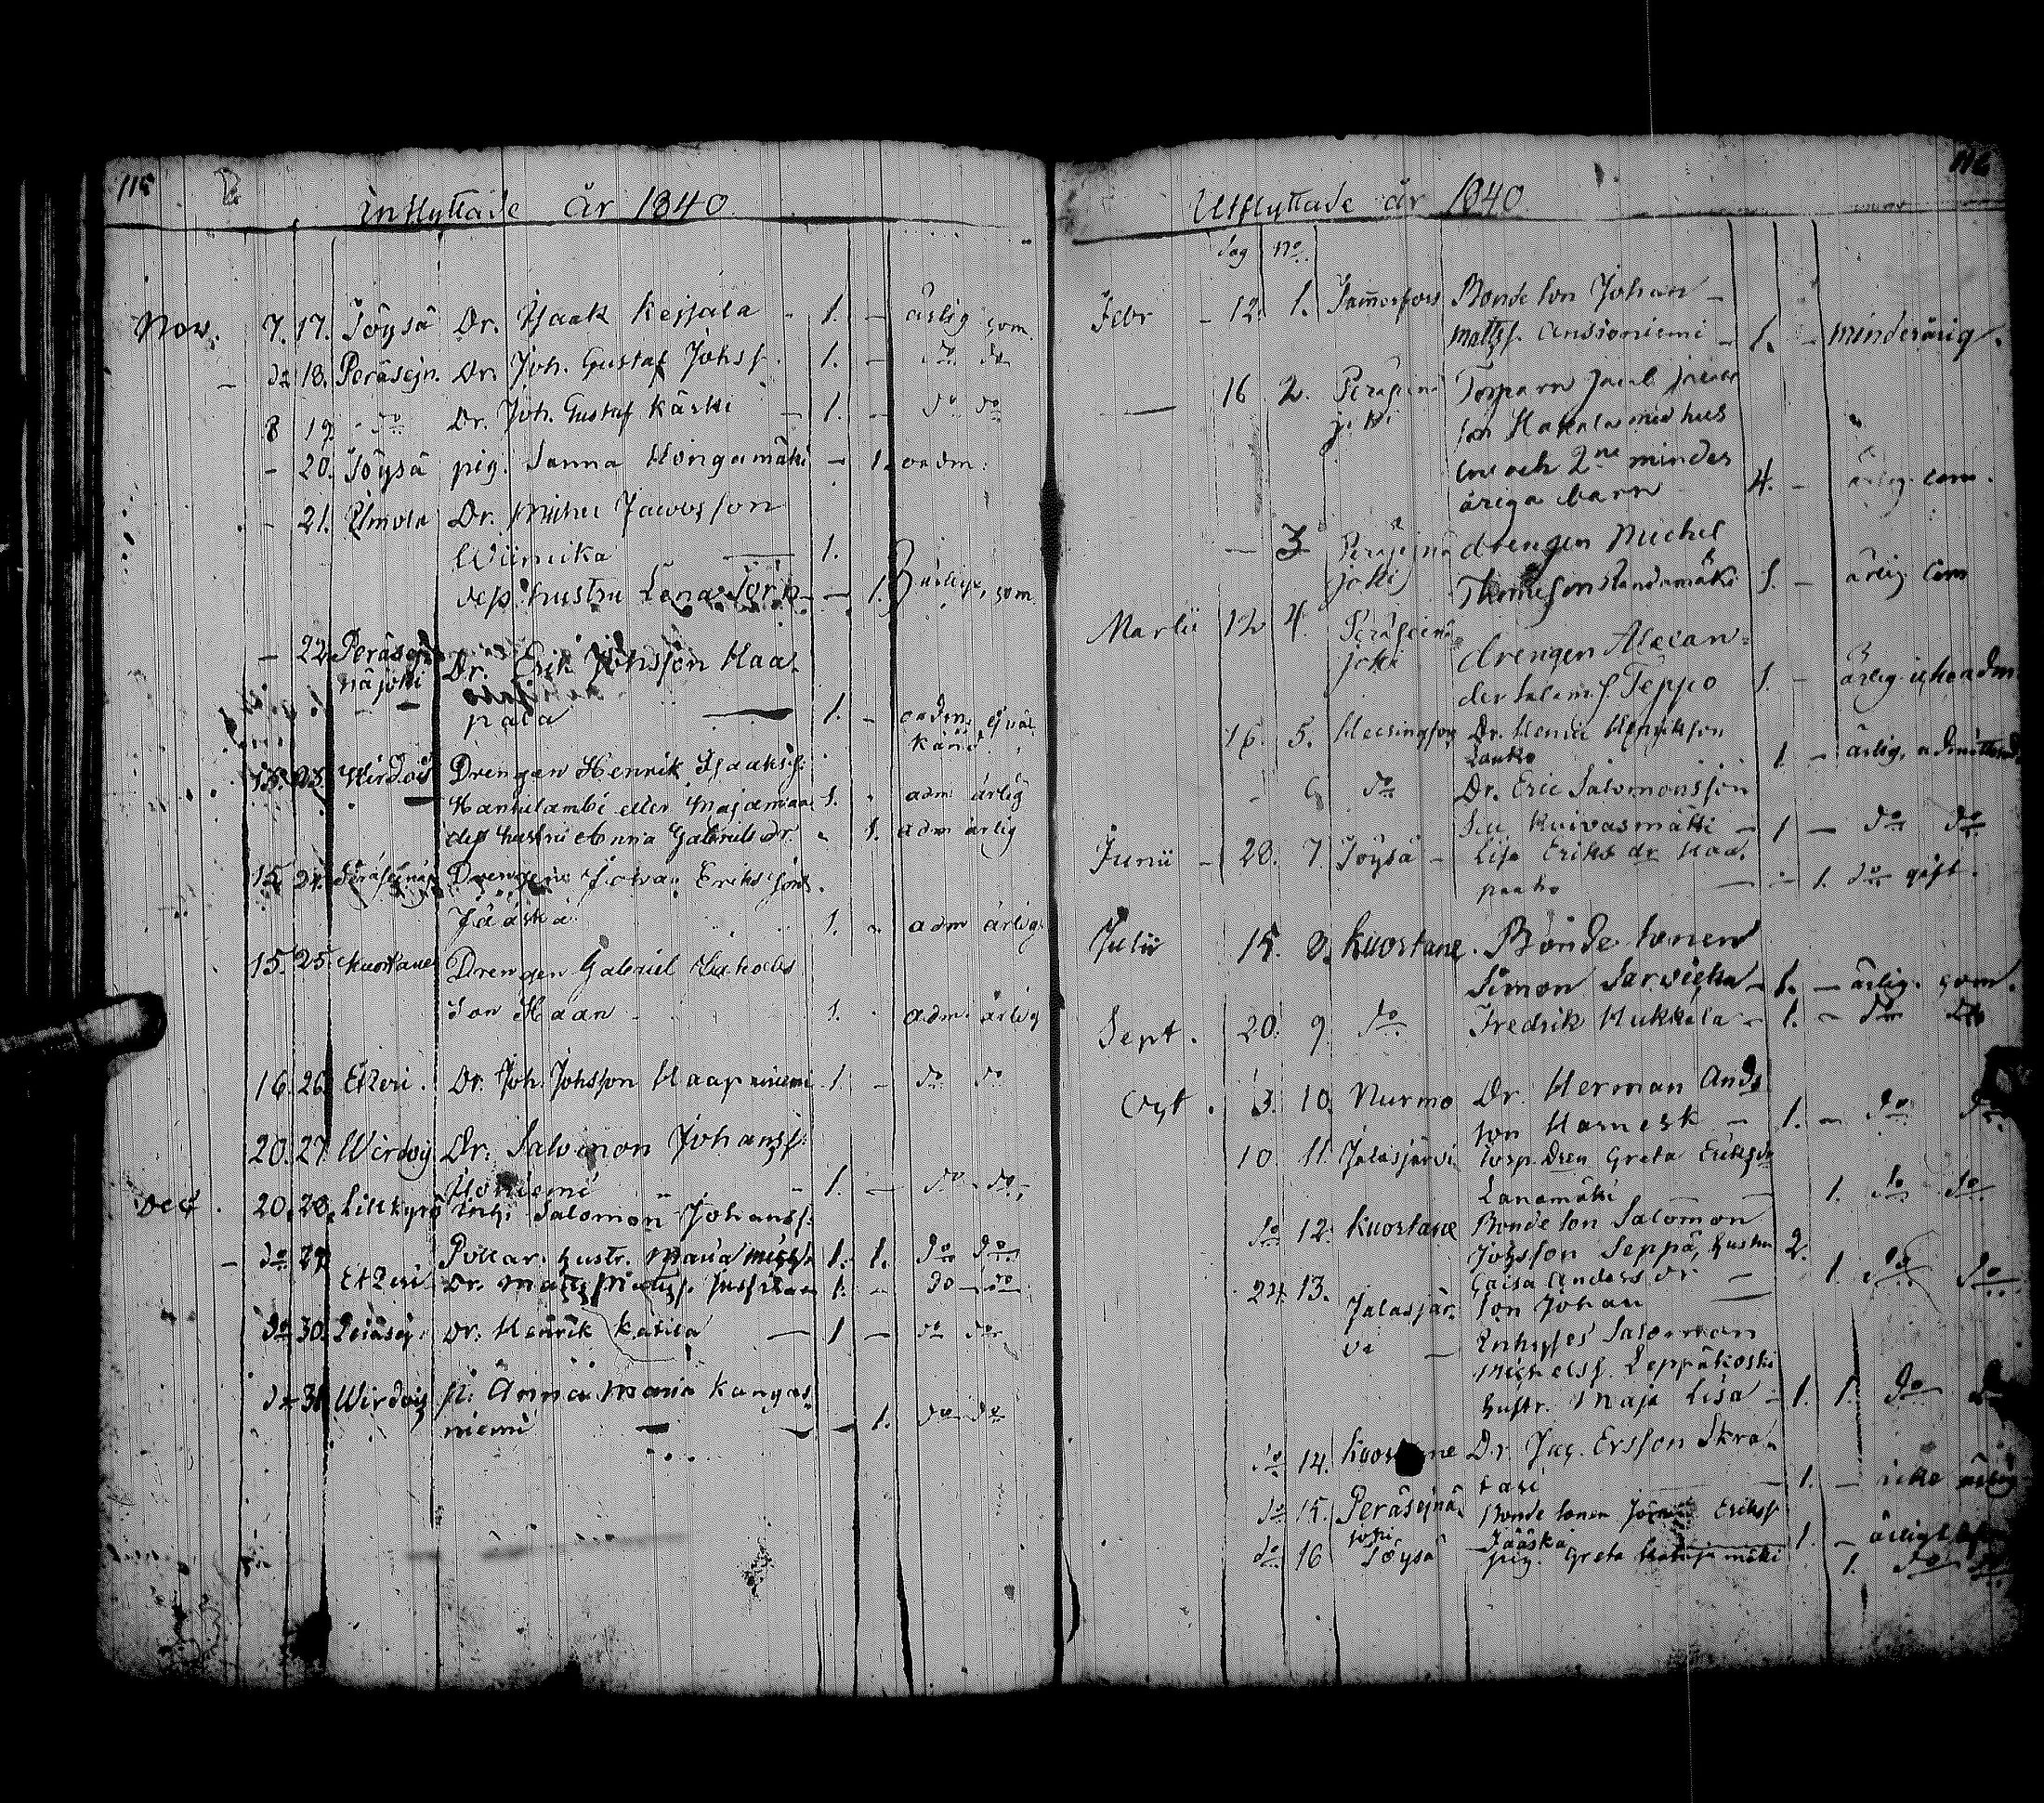 115
Inflyttade år 1840
Nov. 7. 17. Töysä Dr. Isaak Keisala - 1. - ärlig com.
- do 18. Peräsejn. Dr. Joh. Gustaf Johsf. 1. - do do
8 19 do Dr. Joh. Gustaf Kärki - 1. - do do
- 20. Töysä pig. Sanna Hongamäki - 1. oadm.
- 21. Ilmola Dr. Michel Jacobsson
Wiinikka — 1.
dess hustru Lena Törn - - 1. ärliga, com.
- 22. Peräsej Dr. Erik Johsson Haa-
näjoki
pala — 1. - oadm. ej väl
känd.
15. 23. Wirdois Drengen Henrik Isaaksf.
Hankilambi eller Majamaa 1. - adm ärlig
dess hustru Anna Gabrielsdr. - 1. adm ärlig
15. 24. Peräseinäj. Drengen Johan Erikssons
Jääskä 1. - adm ärlig
15. 25. Kuortane Drengen Gabriel
son Haan - 1. - adm. ärlig
16. 26. Etzeri. Dr. Joh. Johsson Haapaniemi 1. - do do
20. 27. Wirdois Dr. Salomon Johansf.
- 1. - do do
Dec. 20. 28. Lillkyrö Inhs Salomon Johansf.
- do 29. hustr. Maria Michsd. 1. 1. do do
Etzeri Dr. Matts Mattsf. 1. - do do
do 30. Peräsej. Dr. Henrik Kasila — 1 - do do
do 31. Wirdois p. Anna Maria Kangas-
niemi — - 1. do do
116
Utflyttade år 1840
dag No
Febr - 12. 1. Tammerfors Bonde son Johan -
Mattsf. Anssoniemi - 1. - minderårig.
— 16 2. Peräseinä Torparn Jacob
joki son Hakala med hus
tru och 2ne minder
åriga barn 4. - ärlig. com.
- 3 Peräseinä drengen Michel
joki Thomasson Randamäki 1. - ärlig com
Martii 12 4. Peräseinä
joki drengen Alexan-
der Salomf. Teppo 1. - ärlig icke adm
16. 5. Helsingfors Dr. Henric Henriksson
Lauko 1 - ärlig, admitterad
- 6 do Dr. Eric Salomonsson
Kuivasmäki - 1 - do do
Junii - 28. 7. Töysä - Lisa Eriks dr Haa-
paaho — - 1. do gift.
Julii 15. 8. Kuortane. Bonde sonen
Simon Sarvicka - 1. - ärlig. com.
Sept. 20. 9 do Fredrik Kukkola - 1. - do do
Oct. 3. 10. Nurmo Dr. Herman Andr
son Harnesk - 1. - do do
10. 11. Jalasjärvi Greta Eriksdr
Lanamäki - 1. do do
do 12. Kuortane Bonde son Salomon
Johsson Seppä, hustru 2.
Caisa Anders dr - 1. do do
24. 13. Jalasjär- son Johan —
vi - Inhyses Salomon
Michelsf. Leppäkoski
hustr. Maja Lisa - 1. 1. do do
do 14. Kuortane Dr. Jac. Ersson Skra-
tari - 1. - icke ärlig
do 15. Peräsejnä Bonde sonen Erikss
joki Jääskä — 1. - ärlig
do 16 Töysä pig. Greta 1. do do